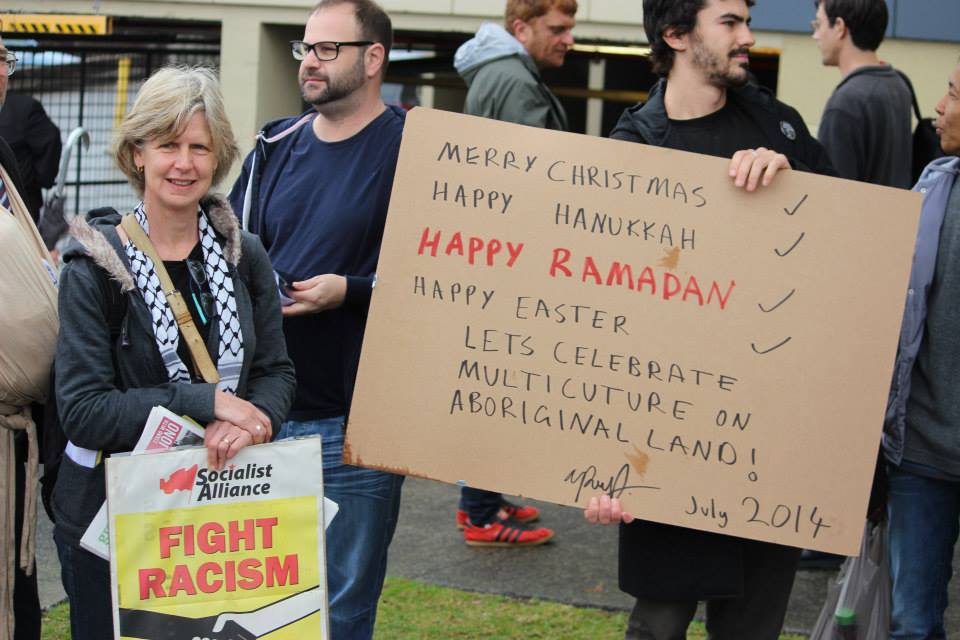 MERRY CHRISTMAS ✓
HAPPY HANUKKAH ✓
HAPPY RAMADAN ✓
HAPPY EASTER ✓
LETS CELEBRATE
MULTICUTURE ON
ABORIGINAL LAND!
July 2014
Socialist
Alliance
FIGHT
RACISM